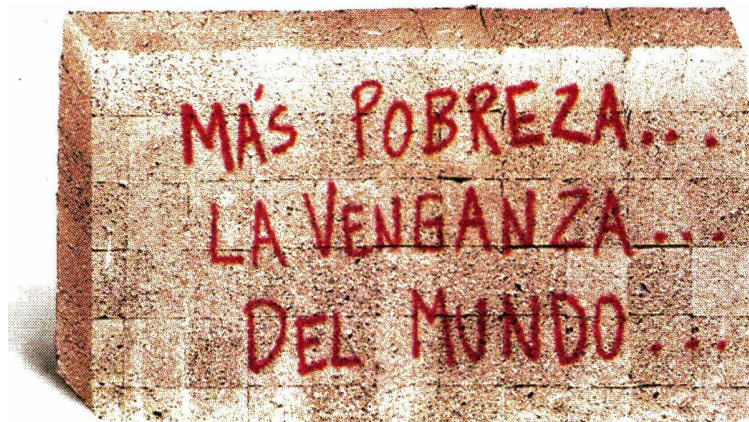 MÁS POBREZA...
LA VENGANZA...
DEL MUNDO...